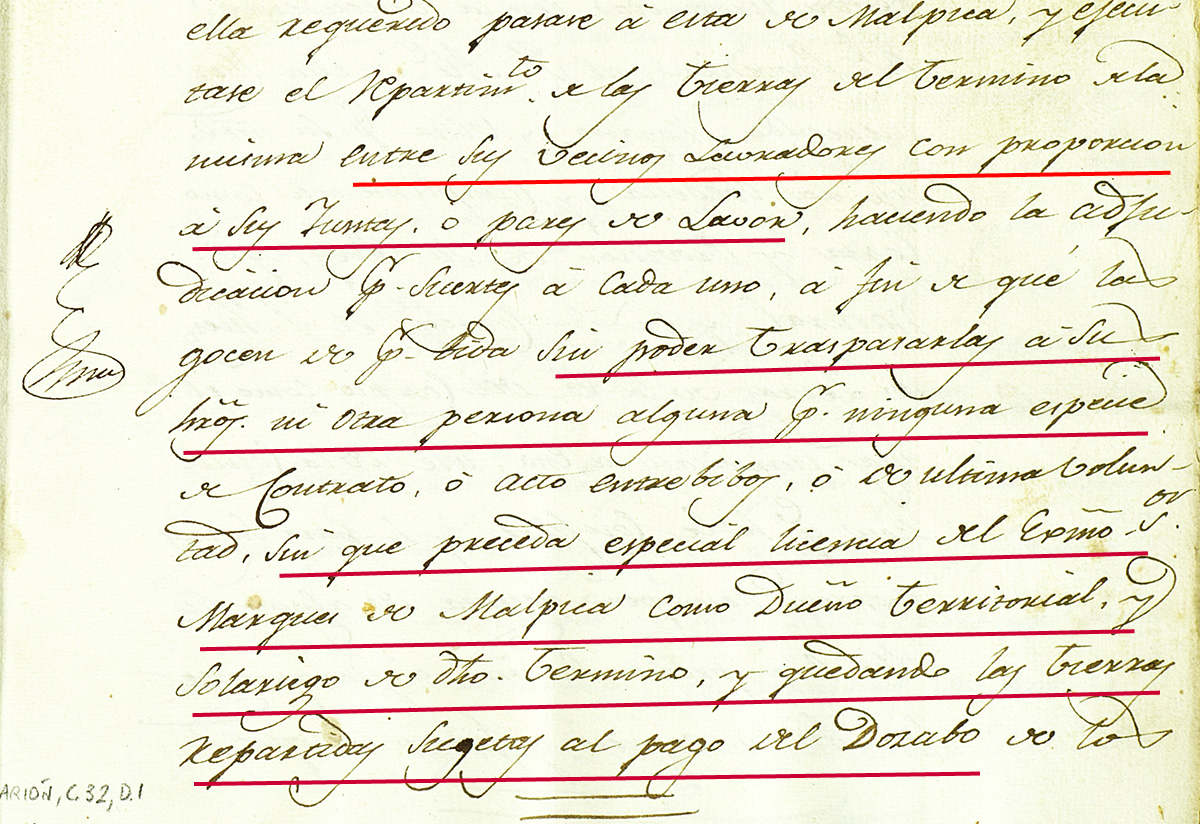 ella requerido pasase á esta de Malpica, y ejecu-
tase el Repartim.to de las tierras del termino de la
misma entre sus vecinos Lavradores con proporcion
á sus Juntas, o pares de Lavor, haciendo la adju-
dicacion p.r suertes á cada uno, á fin de qué las
gocen de p.r vida sin poder traspasarlas á sus
hros. ni otra persona alguna p.r ninguna especie
de Contrato, ó acto entre bibos, ó de ultima volun-
tad, sin que preceda especial licencia del Exmõ S.or
Marques de Malpica como Dueño territorial, y
Solariego de dho. termino, y quedando las tierras
Repartidas sugetas al pago del Dozabo de los
ARIÓN, C.32, D.1